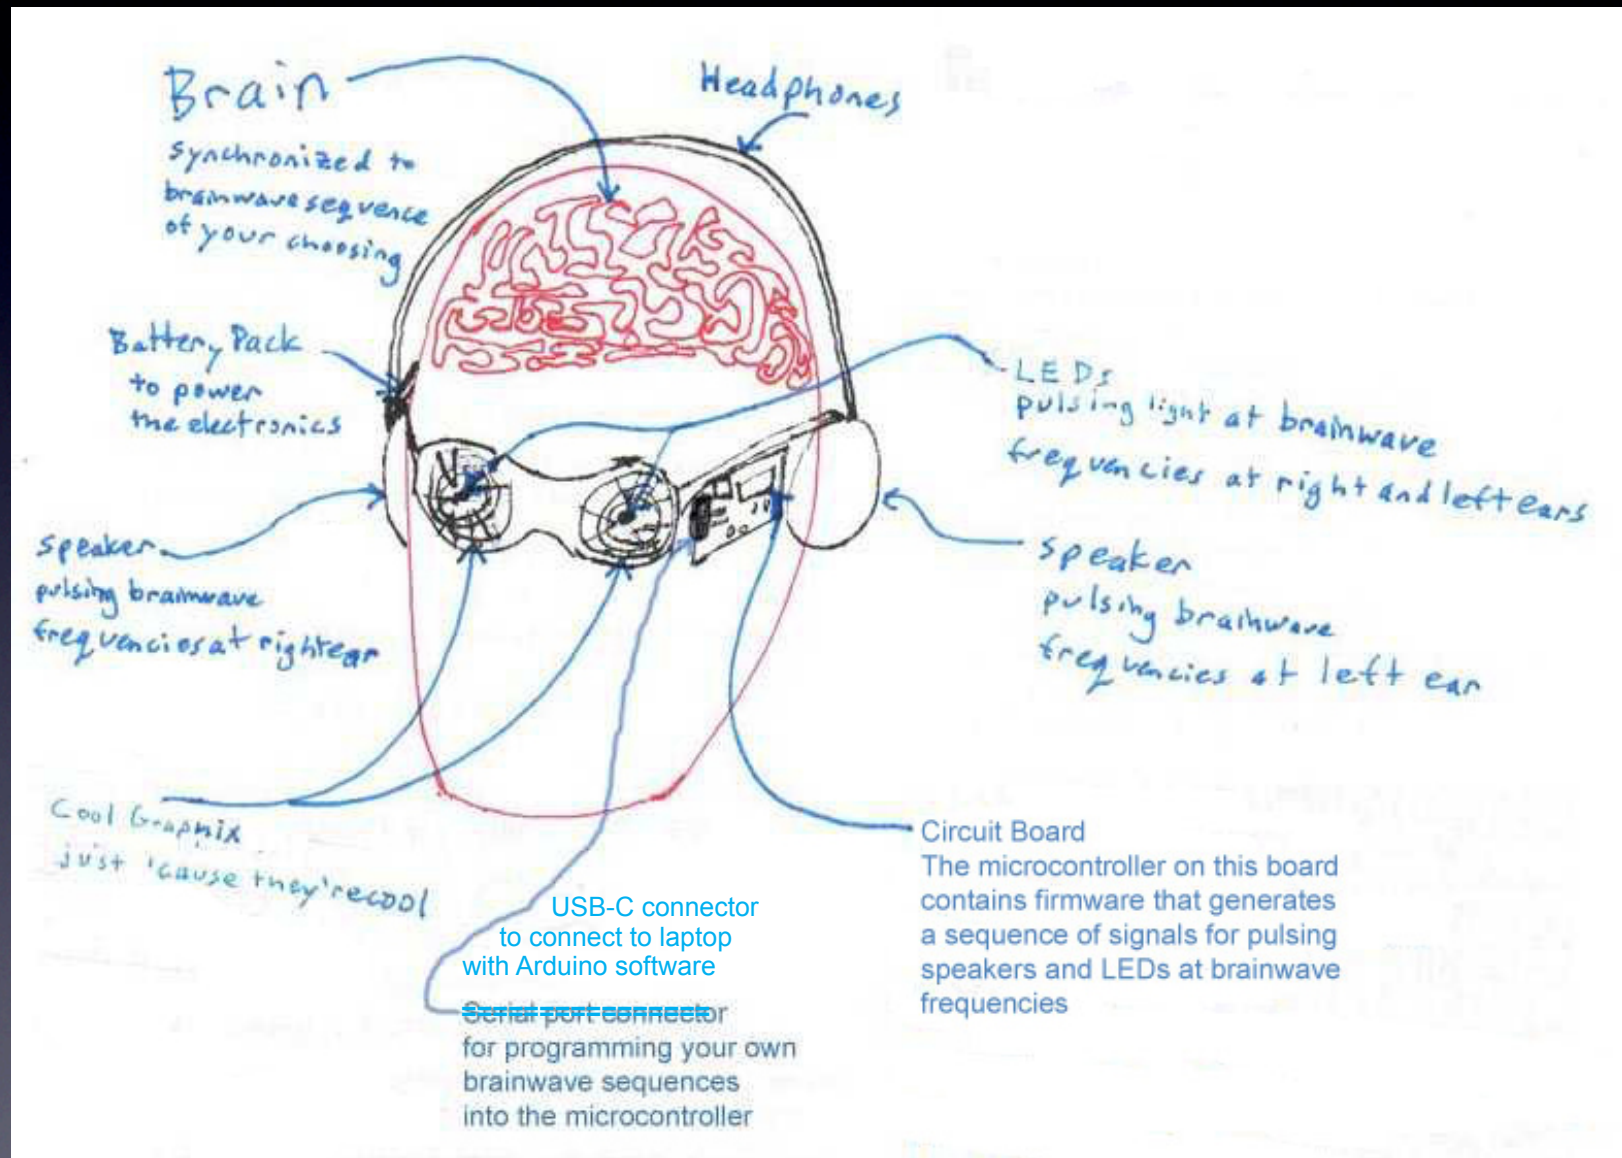 Brain
synchronized to
brainwave sequence
of your choosing
Headphones
Battery Pack
to power
the electronics
LEDs
pulsing light at brainwave
frequencies at right and left ears
speaker
pulsing brainwave
frequencies at right ear
speaker
pulsing brainwave
frequencies at left ear
Cool Graphix
just 'cause they're cool
USB-C connector
to connect to laptop
with Arduino software
Serial port connector
for programming your own
brainwave sequences
into the microcontroller
Circuit Board
The microcontroller on this board
contains firmware that generates
a sequence of signals for pulsing
speakers and LEDs at brainwave
frequencies